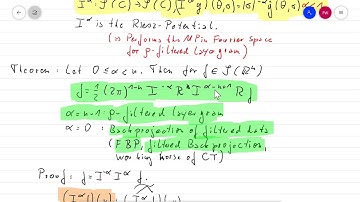 I^α is the Riesz-Potential.
(α Performs the M P in Fourier Space
for ρ-filtered layergram)
Theorem: Let 0 ≤ α < n. Then for f ∈ S(ℝ^n)
f = 1/2 (2π)^{1-n} I^{-α} R* I^{α-n+1} R f
α = n-1: ρ-filtered layergram
α = 0: Backprojection of filtered data
(FBP, filtered Backprojection,
working horse of CT)
Proof: f = I^{-α} I^α f.